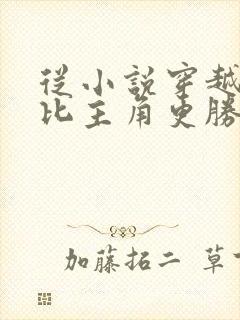 從小說穿越
比主角更勝
加藤拓二 草